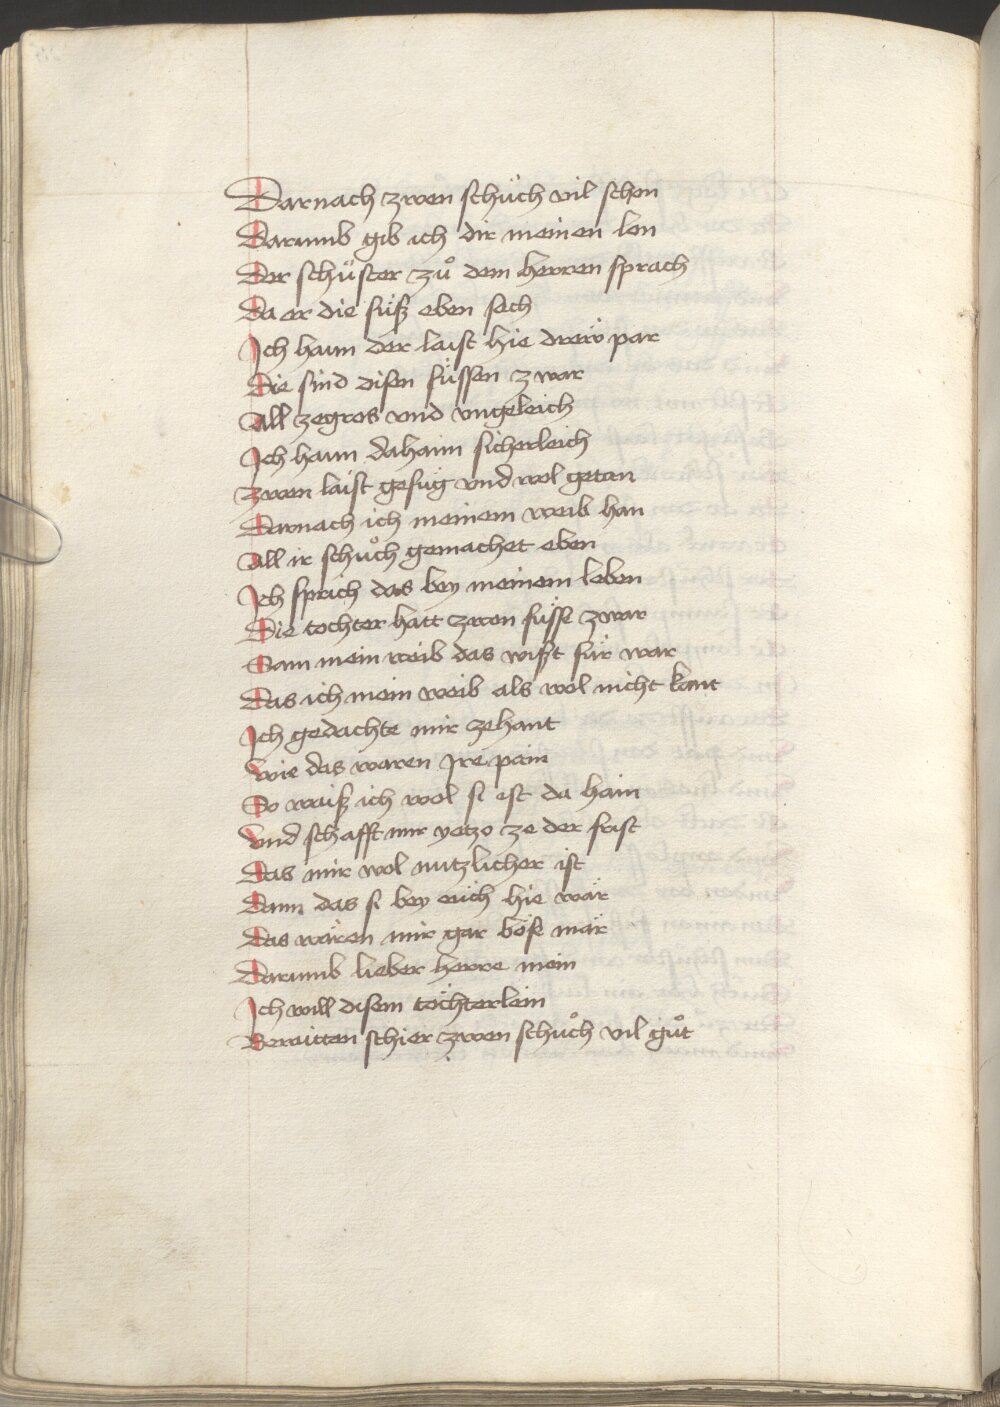 Darnach zwen schüch vil schon
Darumb gib ich dir meinen lon
Der schůster zů dem herren sprach
Da er die füß eben sach
Ich haun der laist hie drew par
Die sind disen füssen zwar
All zegros vnd vngeleich
Ich haun dahaim sicherleich
Zwen laist gefüg vnd wol getan
Darnach ich meinem weib han
All ir schůch gemachet eben
Ich sprich das bey meinem leben
Die tochter hatt zwen füsse zwar
Sam mein weib das wißt für war
Das ich mein weib als wol nicht kant
Ich gedachte mir zehant
Wie das waren Ire pain
So waiß ich wol si ist da haim
Vnd schafft mir yetzo ze der frist
Das mir wol nutzlicher ist
Dann das si bey euch hie wär
Das wären mir gar böse mär
Darumb lieber herre mein
Ich will disem töchterlein
Beraitten schier zwen schůch vil gůt